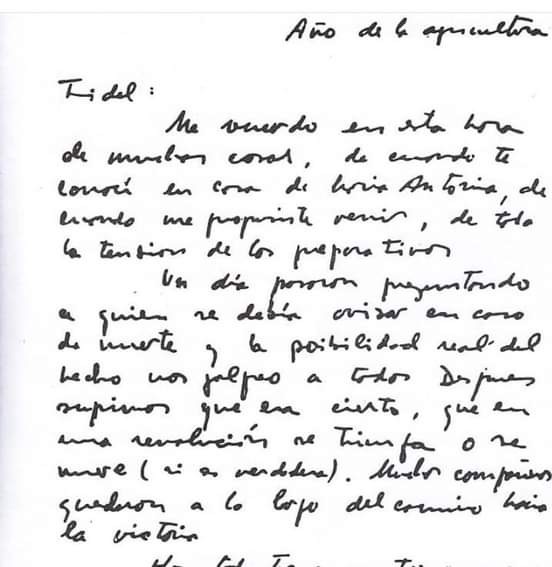 Año de la agricultura
Fidel:
Me recuerdo en esta hora
de muchas cosas, de cuando te
conocí en casa de María Antonia, de
cuando me propusiste venir, de toda
la tension de los preparativos
Un día pasaron preguntando
a quien se debía avisar en caso
de muerte y la posibilidad real del
hecho nos golpeo a todos Despues
supimos que era cierto, que en
una revolución se triunfa o se
muere (si es verdadera). Muchos compañeros
quedaron a lo largo del camino hacia
la victoria
Hoy todo tiene un